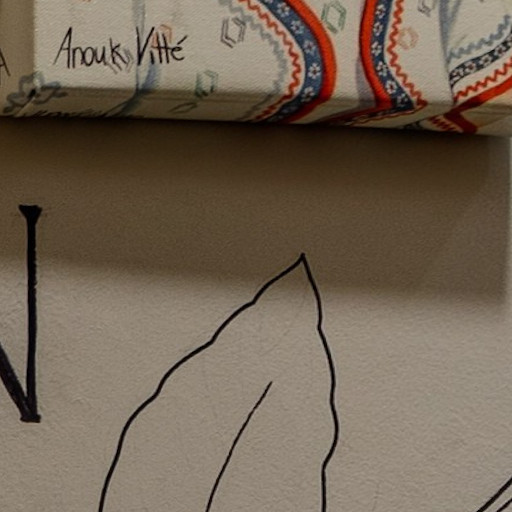 Anouk Vitté
N